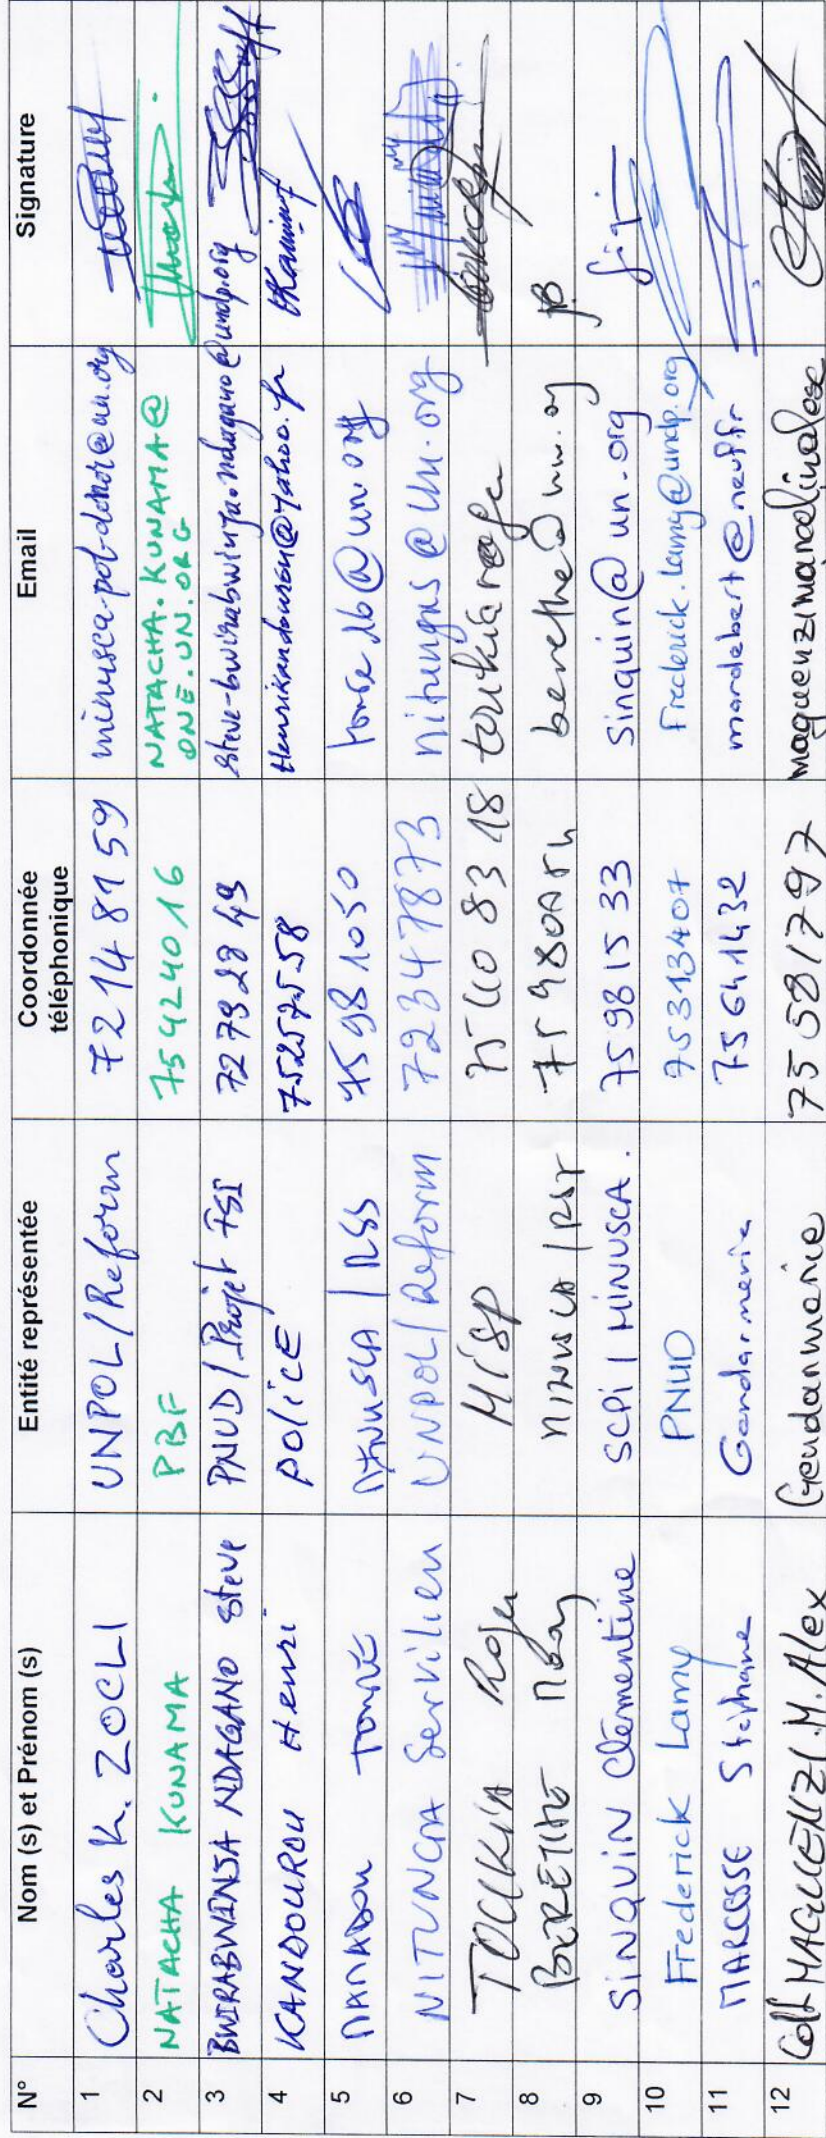 N° Nom (s) et Prénom (s) Entité représentée Coordonnée téléphonique Email Signature
1 Charles K. ZOCLI UNPOL/Reform 72148159 minusca-pol-donor@un.org
2 NATACHA KUNAMA PBF 75424016 NATACHA.KUNAMA@
ONE.UN.ORG
3 BWIRABWINJA NDAGANO Steve PNUD / Projet FSI 72792849 steve-bwirabwinja.ndagano@undp.org
4 KANDOUROU Henri POLICE 75257558 Henrikandourou@yahoo.fr
5 MAMADOU TOURE / RSS 75981050 @un.org
6 NITUNGA Servilien UNPOL/Reform 72347873 nitungas@un.org
7 TOUKIA Roger MISP 75408318 toukiaroger
8 BERETHE MINUSCA / berethe@un.org
9 SINQUIN Clémentine SCPI / MINUSCA. 75981533 sinquin@un.org
10 Frederick Lamy PNUD 75313407 Frederick.lamy@undp.org
11 MARCESSE Stéphane Gendarmerie 75641432 @neuf.fr
12 MAGUENZI.M.Alex Gendarmerie 75581797